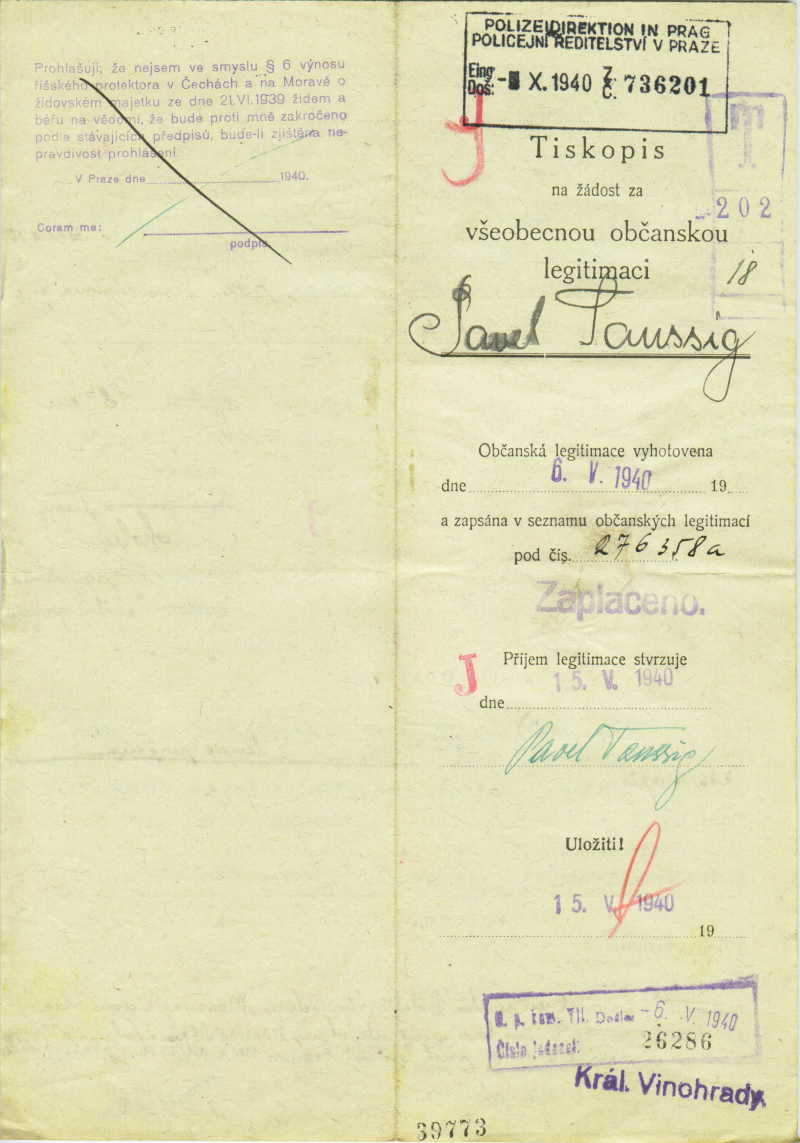 Prohlašuji, že nejsem ve smyslu § 6 výnosu
říšského protektora v Čechách a na Moravě o
židovském majetku ze dne 21.VI.1939 židem a
béřu na vědomí, že bude proti mně zakročeno
podle stávajících předpisů, bude-li zjištěna ne-
pravdivost prohlášení.
V Praze dne 1940.
Coram me:
podpis
POLIZEIDIREKTION IN PRAG
POLICEJNÍ ŘEDITELSTVÍ V PRAZE
Eing.
Doš: X. 1940 Z. Č. 736201
J
Tiskopis
na žádost za
202
všeobecnou občanskou
legitimaci
18
Pavel Taussig
Občanská legitimace vyhotovena
dne 6. V. 1940 19
a zapsána v seznamu občanských legitimací
pod čís. 276358a
Zaplaceno.
J
Příjem legitimace stvrzuje
15. V. 1940
dne
Pavel Taussig
Uložiti!
15. V. 1940
19
Došlo -6. V. 1940
26286
Král. Vinohrady.
39773